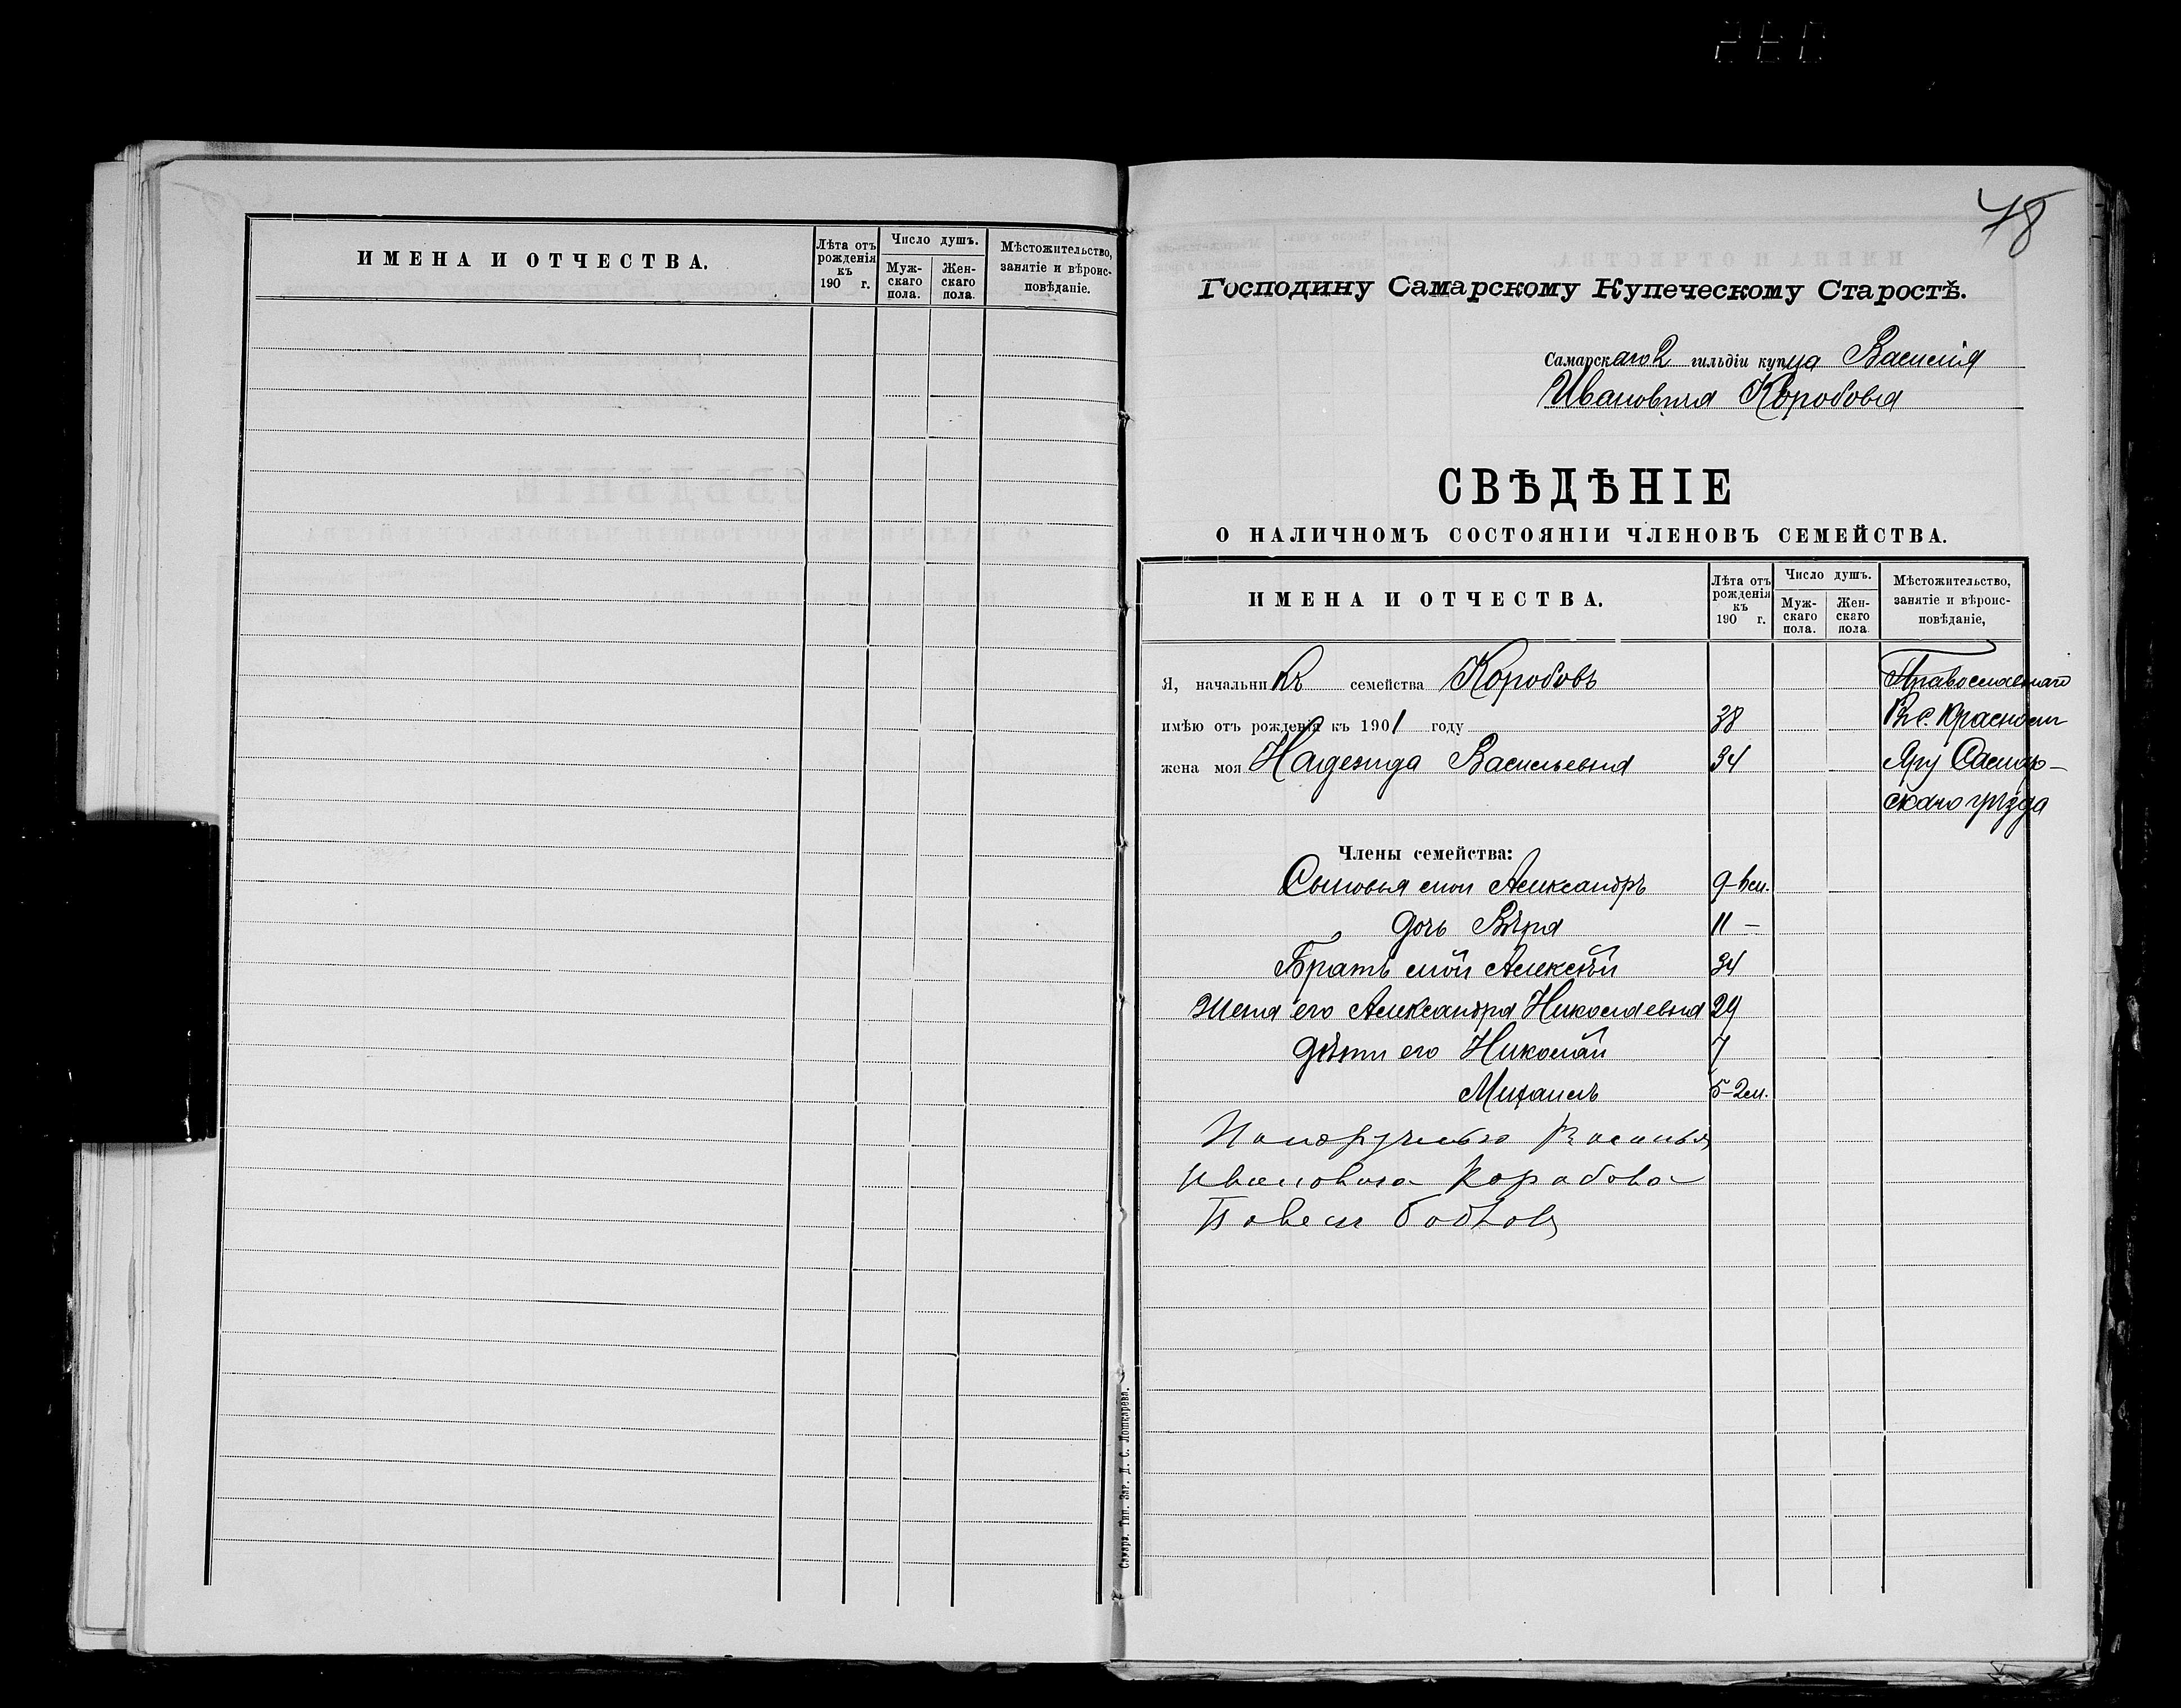 ИМЕНА И ОТЧЕСТВА.
Лѣта отъ рожденія къ 190 г.
Число душъ.
Муж-скаго пола.
Жен-скаго пола.
Мѣстожительство, занятіе и вѣроис-повѣданіе.
78
Господину Самарскому Купеческому Старостѣ.
Самарскаго 2 гильдіи купца Василія
Ивановича Коробова
СВѢДѢНІЕ
О НАЛИЧНОМЪ СОСТОЯНІИ ЧЛЕНОВЪ СЕМЕЙСТВА.
ИМЕНА И ОТЧЕСТВА.
Лѣта отъ рожденія къ 190 г.
Число душъ.
Муж-скаго пола.
Жен-скаго пола.
Мѣстожительство, занятіе и вѣроис-повѣданіе,
Я, начальникъ семейства Коробовъ Православнаго
имѣю отъ рожденія къ 1901 году 38 Въ с. Красномъ
жена моя Надежда Васильевна 34 Яру Самар-
скаго уѣзда
Члены семейства:
Сыновья мои Александръ 9-6 м.
дочь Вѣра 11 —
Братъ мой Алексѣй 34
Жена его Александра Николаевна 29
дѣти его Николай 7
Михаилъ 5-2 м.
Василья
Ивановича Корабова
Павелъ
Самара. Тип. Зав. Д. С. Лошкарева.